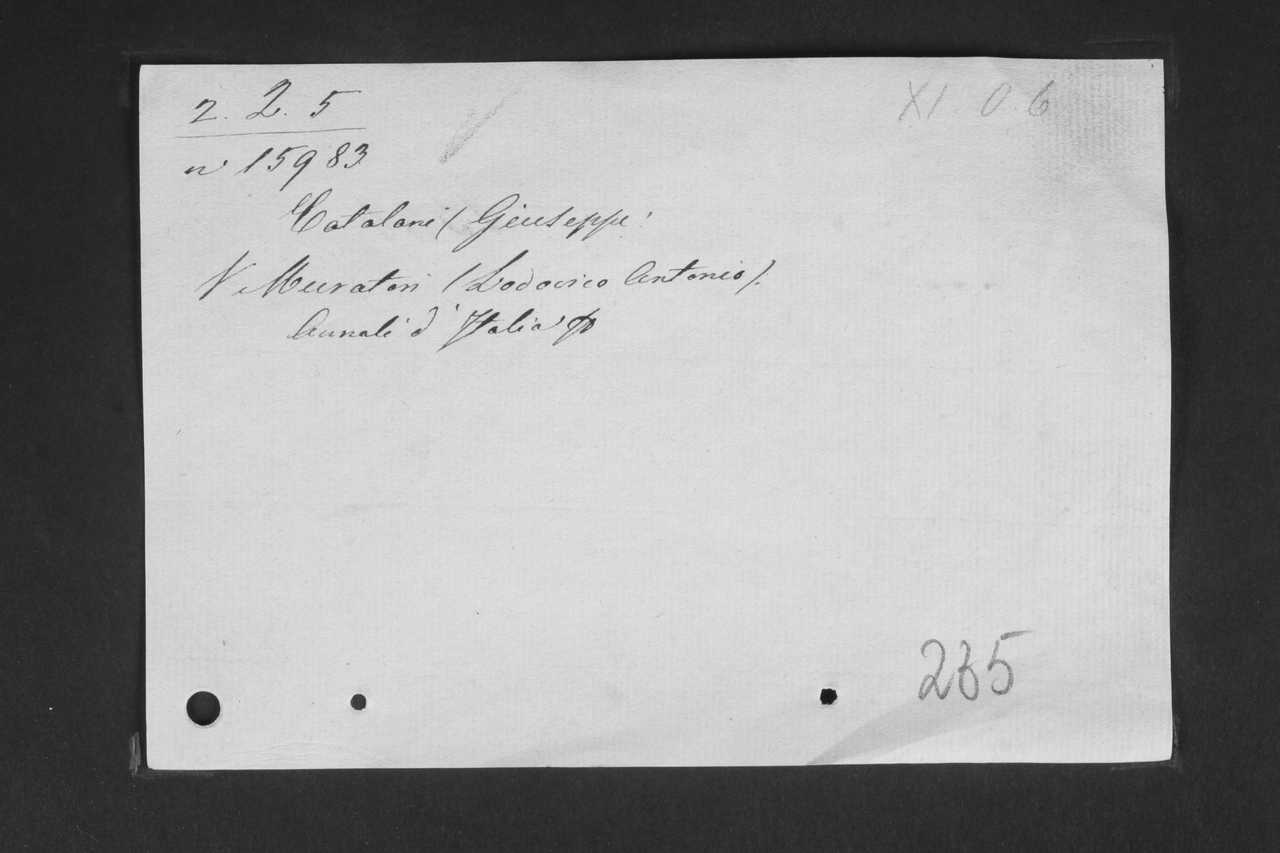 2. 2. 5
XI. O. 6
nº 15983
Catalani (Giuseppe
V. Muratori (Lodovico Antonio).
Annali d'Italia
235